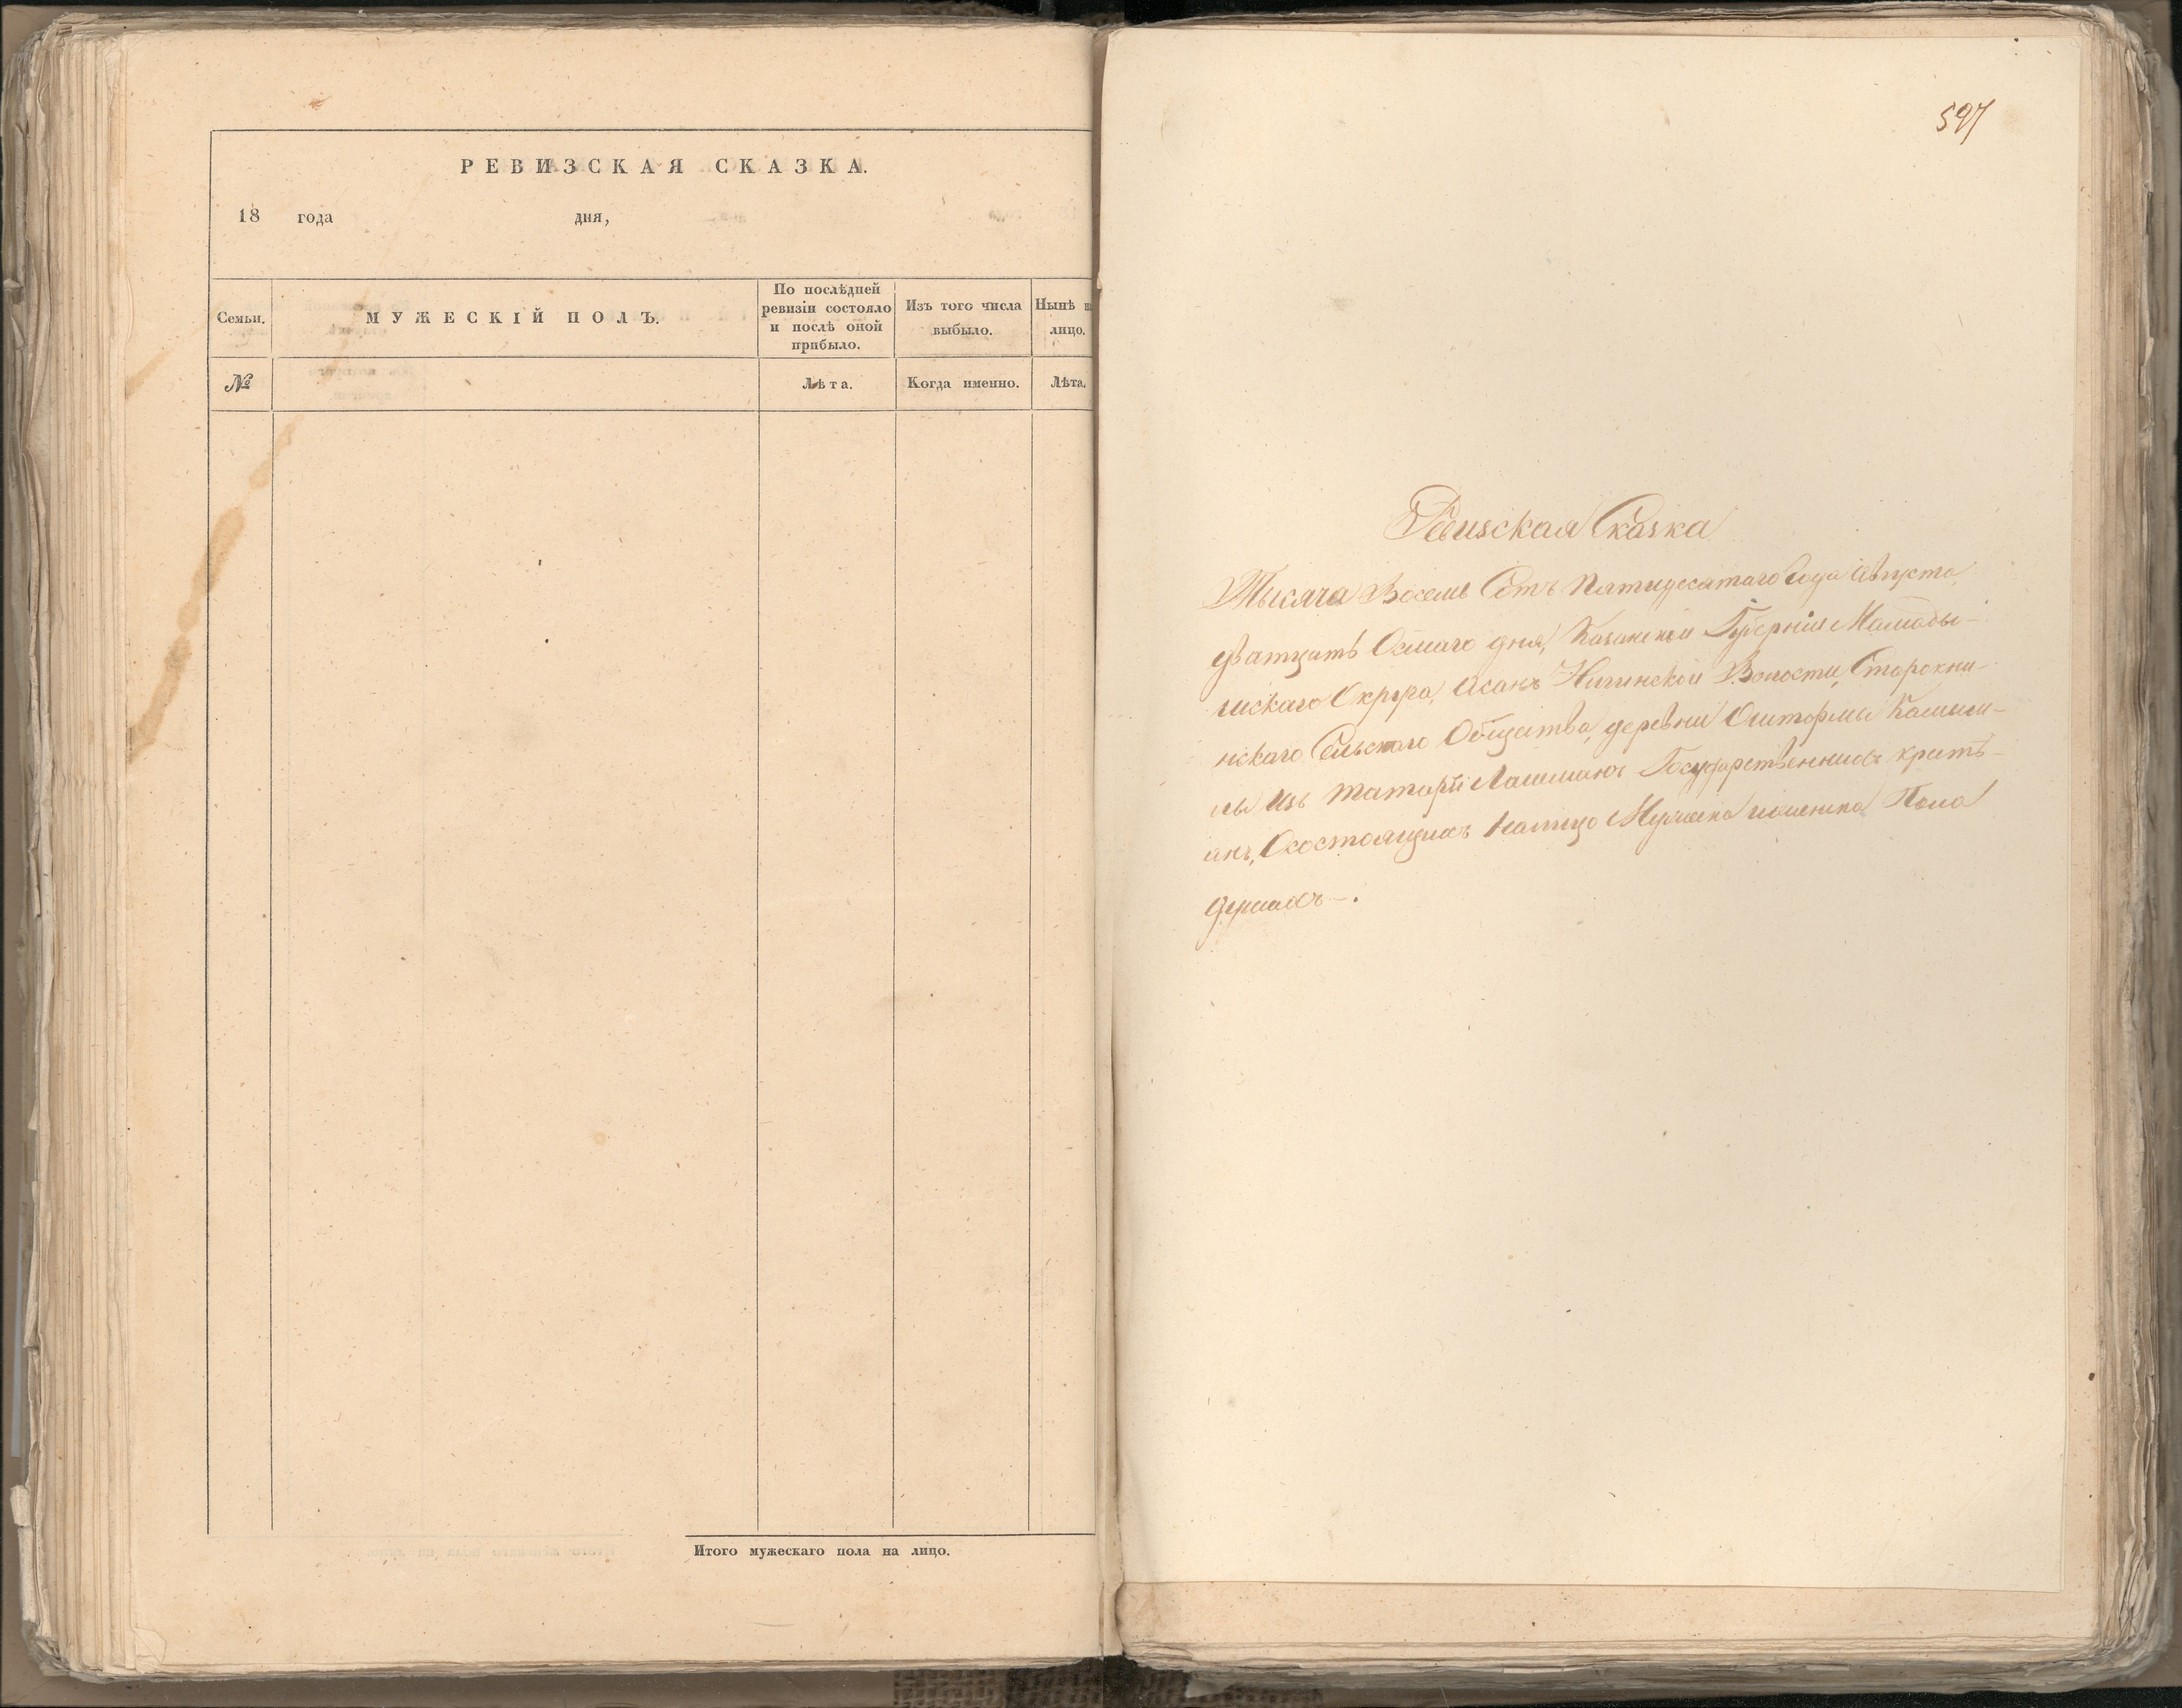 РЕВИЗСКАЯ СКАЗКА.
18 года дня,
Семьи.
МУЖЕСКІЙ ПОЛЪ.
По послѣдней
ревизіи состояло
и послѣ оной
прибыло.
Изъ того числа
выбыло.
Нынѣ на
лицо.
№
Лѣта.
Когда именно.
Лѣта.
Итого мужескаго пола на лицо.
597
Ревизская Сказка
Тысяча Восемь Сотъ Пятидесятаго Года Августа
дватцать Осмаго дня, Казанской Губерніи Мамады-
шскаго Округа, Асанъ Волости, Старокни-
нскаго Сельскаго Общества, деревни Оштормы
изъ татаръ Лашманъ Государственныхъ крить-
янъ, Осостоящихъ налицо Мужеска иженска Пола
душахъ-.